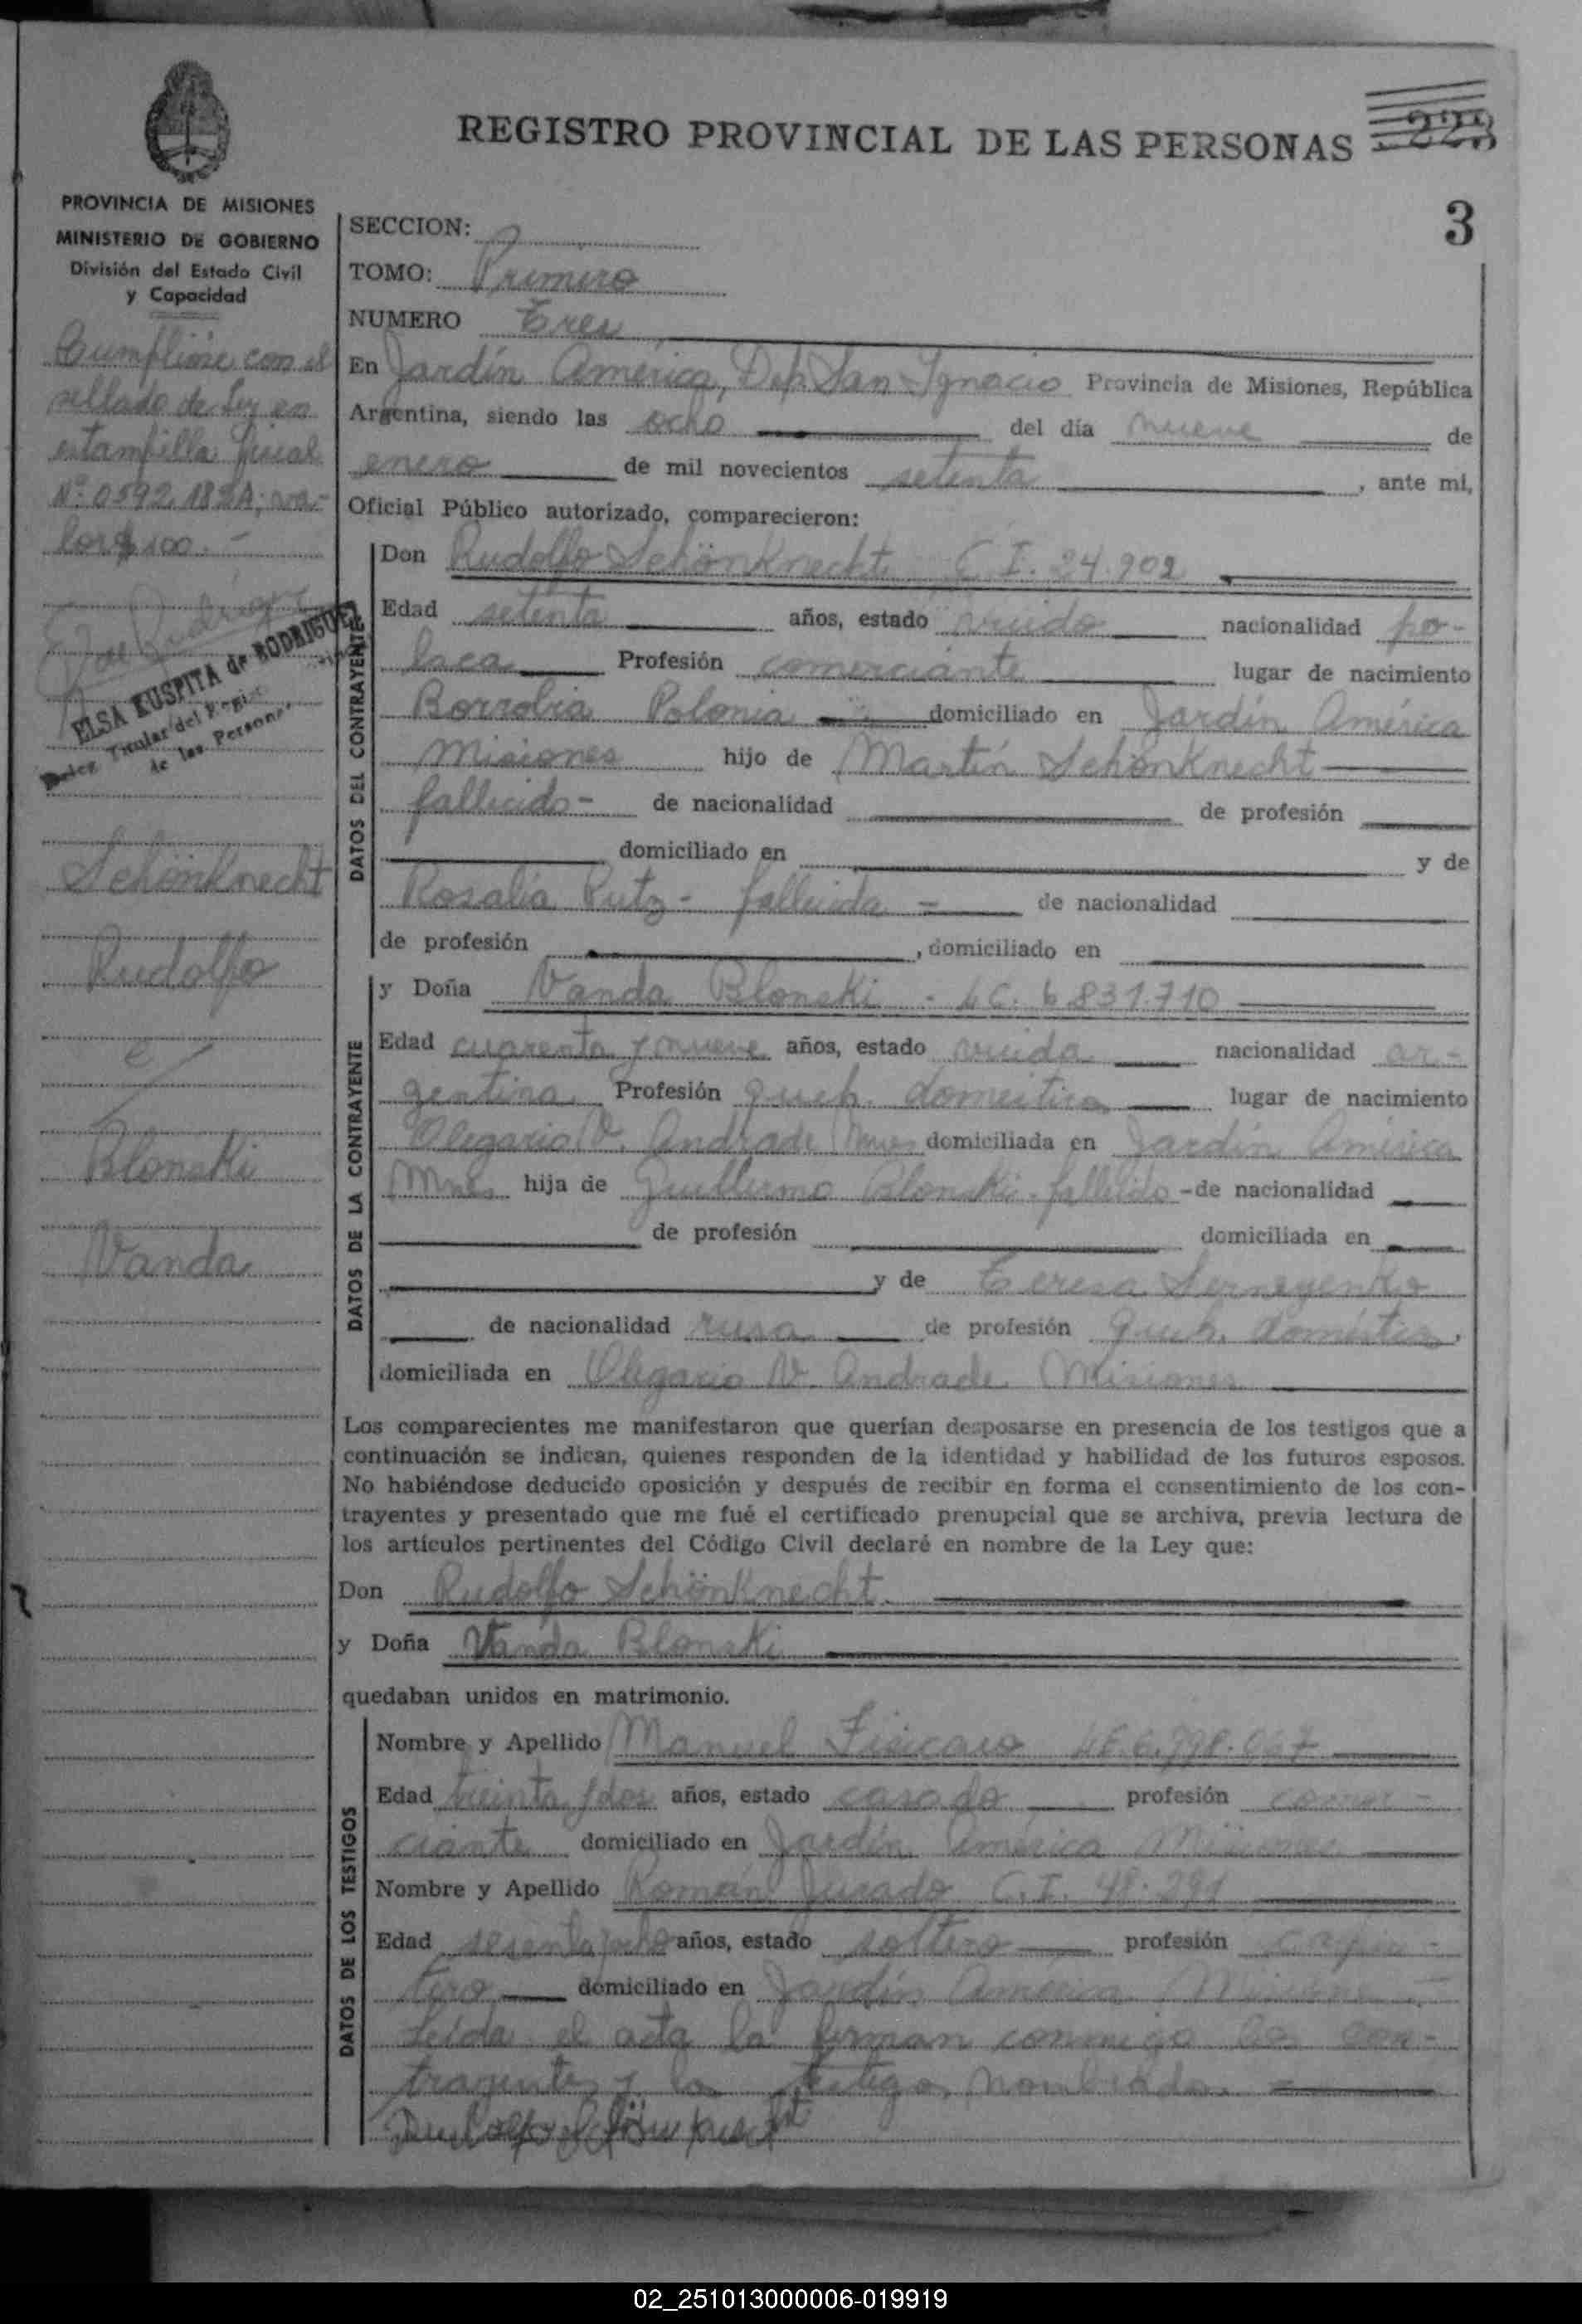 REGISTRO PROVINCIAL DE LAS PERSONAS 223
3
PROVINCIA DE MISIONES
MINISTERIO DE GOBIERNO
División del Estado Civil
y Capacidad
Cumplióse con el
sellado de Ley en
estampilla fiscal
Nº 0592182A; va-
lor $ 100.-
ELSA KUSPITA de RODRIGUEZ
Titular del
de las Personas
Schönknecht
Rudolfo
e
Blonski
Vanda
SECCION:
TOMO: Primero
NUMERO Tres
En Jardín América, Dep. San Ignacio Provincia de Misiones, República
Argentina, siendo las ocho del día nueve de
enero de mil novecientos setenta, ante mi,
Oficial Público autorizado, comparecieron:
DATOS DEL CONTRAYENTE
Don Rudolfo Schönknecht C.I. 24.902
Edad setenta años, estado viudo nacionalidad po-
laca Profesión comerciante lugar de nacimiento
Borrobia Polonia domiciliado en Jardín América
Misiones hijo de Martín Schönknecht
fallecido- de nacionalidad de profesión
domiciliado en y de
Rosalía Putz - fallecida - de nacionalidad
de profesión , domiciliado en
DATOS DE LA CONTRAYENTE
y Doña Vanda Blonski - L.C. 6.831.710
Edad cuarenta y nueve años, estado viuda nacionalidad ar-
gentina Profesión queh. doméstico lugar de nacimiento
Olegario V. Andrade Mnes domiciliada en Jardín América
Mnes hija de Guillermo Blonski - fallecido - de nacionalidad
de profesión domiciliada en
y de Teresa
de nacionalidad rusa de profesión queh. doméstico,
domiciliada en Olegario V. Andrade Misiones
Los comparecientes me manifestaron que querían desposarse en presencia de los testigos que a
continuación se indican, quienes responden de la identidad y habilidad de los futuros esposos.
No habiéndose deducido oposición y después de recibir en forma el consentimiento de los con-
trayentes y presentado que me fué el certificado prenupcial que se archiva, previa lectura de
los artículos pertinentes del Código Civil declaré en nombre de la Ley que:
Don Rudolfo Schönknecht
y Doña Vanda Blonski
quedaban unidos en matrimonio.
DATOS DE LOS TESTIGOS
Nombre y Apellido Manuel Fisicaro
Edad treinta y dos años, estado casado profesión comer-
ciante domiciliado en Jardín América Misiones
Nombre y Apellido Román Jurado C.I. 48.291
Edad sesenta y ocho años, estado soltero profesión carpin-
tero domiciliado en Jardín América Misiones
Leída el acta la firman conmigo los con-
trayentes y los testigos nombrados.
02_251013000006-019919